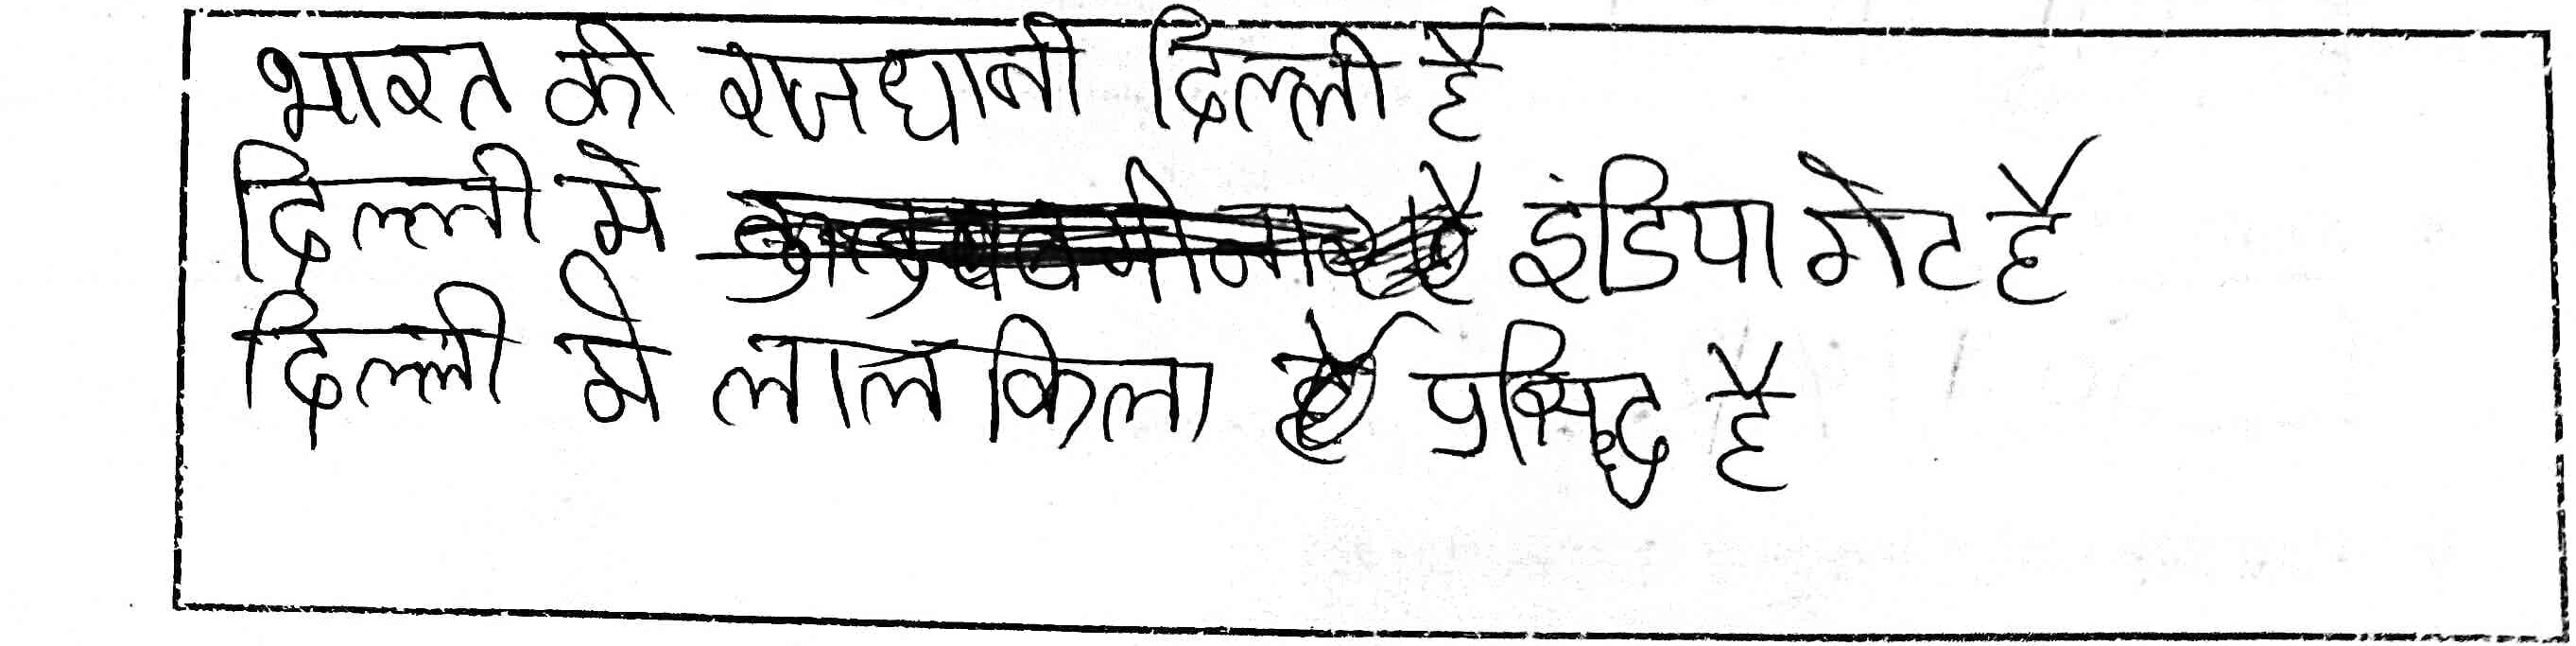 भारत की राजधानी दिल्ली है
दिल्ली मे इंडिया गेट है
दिल्ली मे लाल किला प्रसिद्ध है